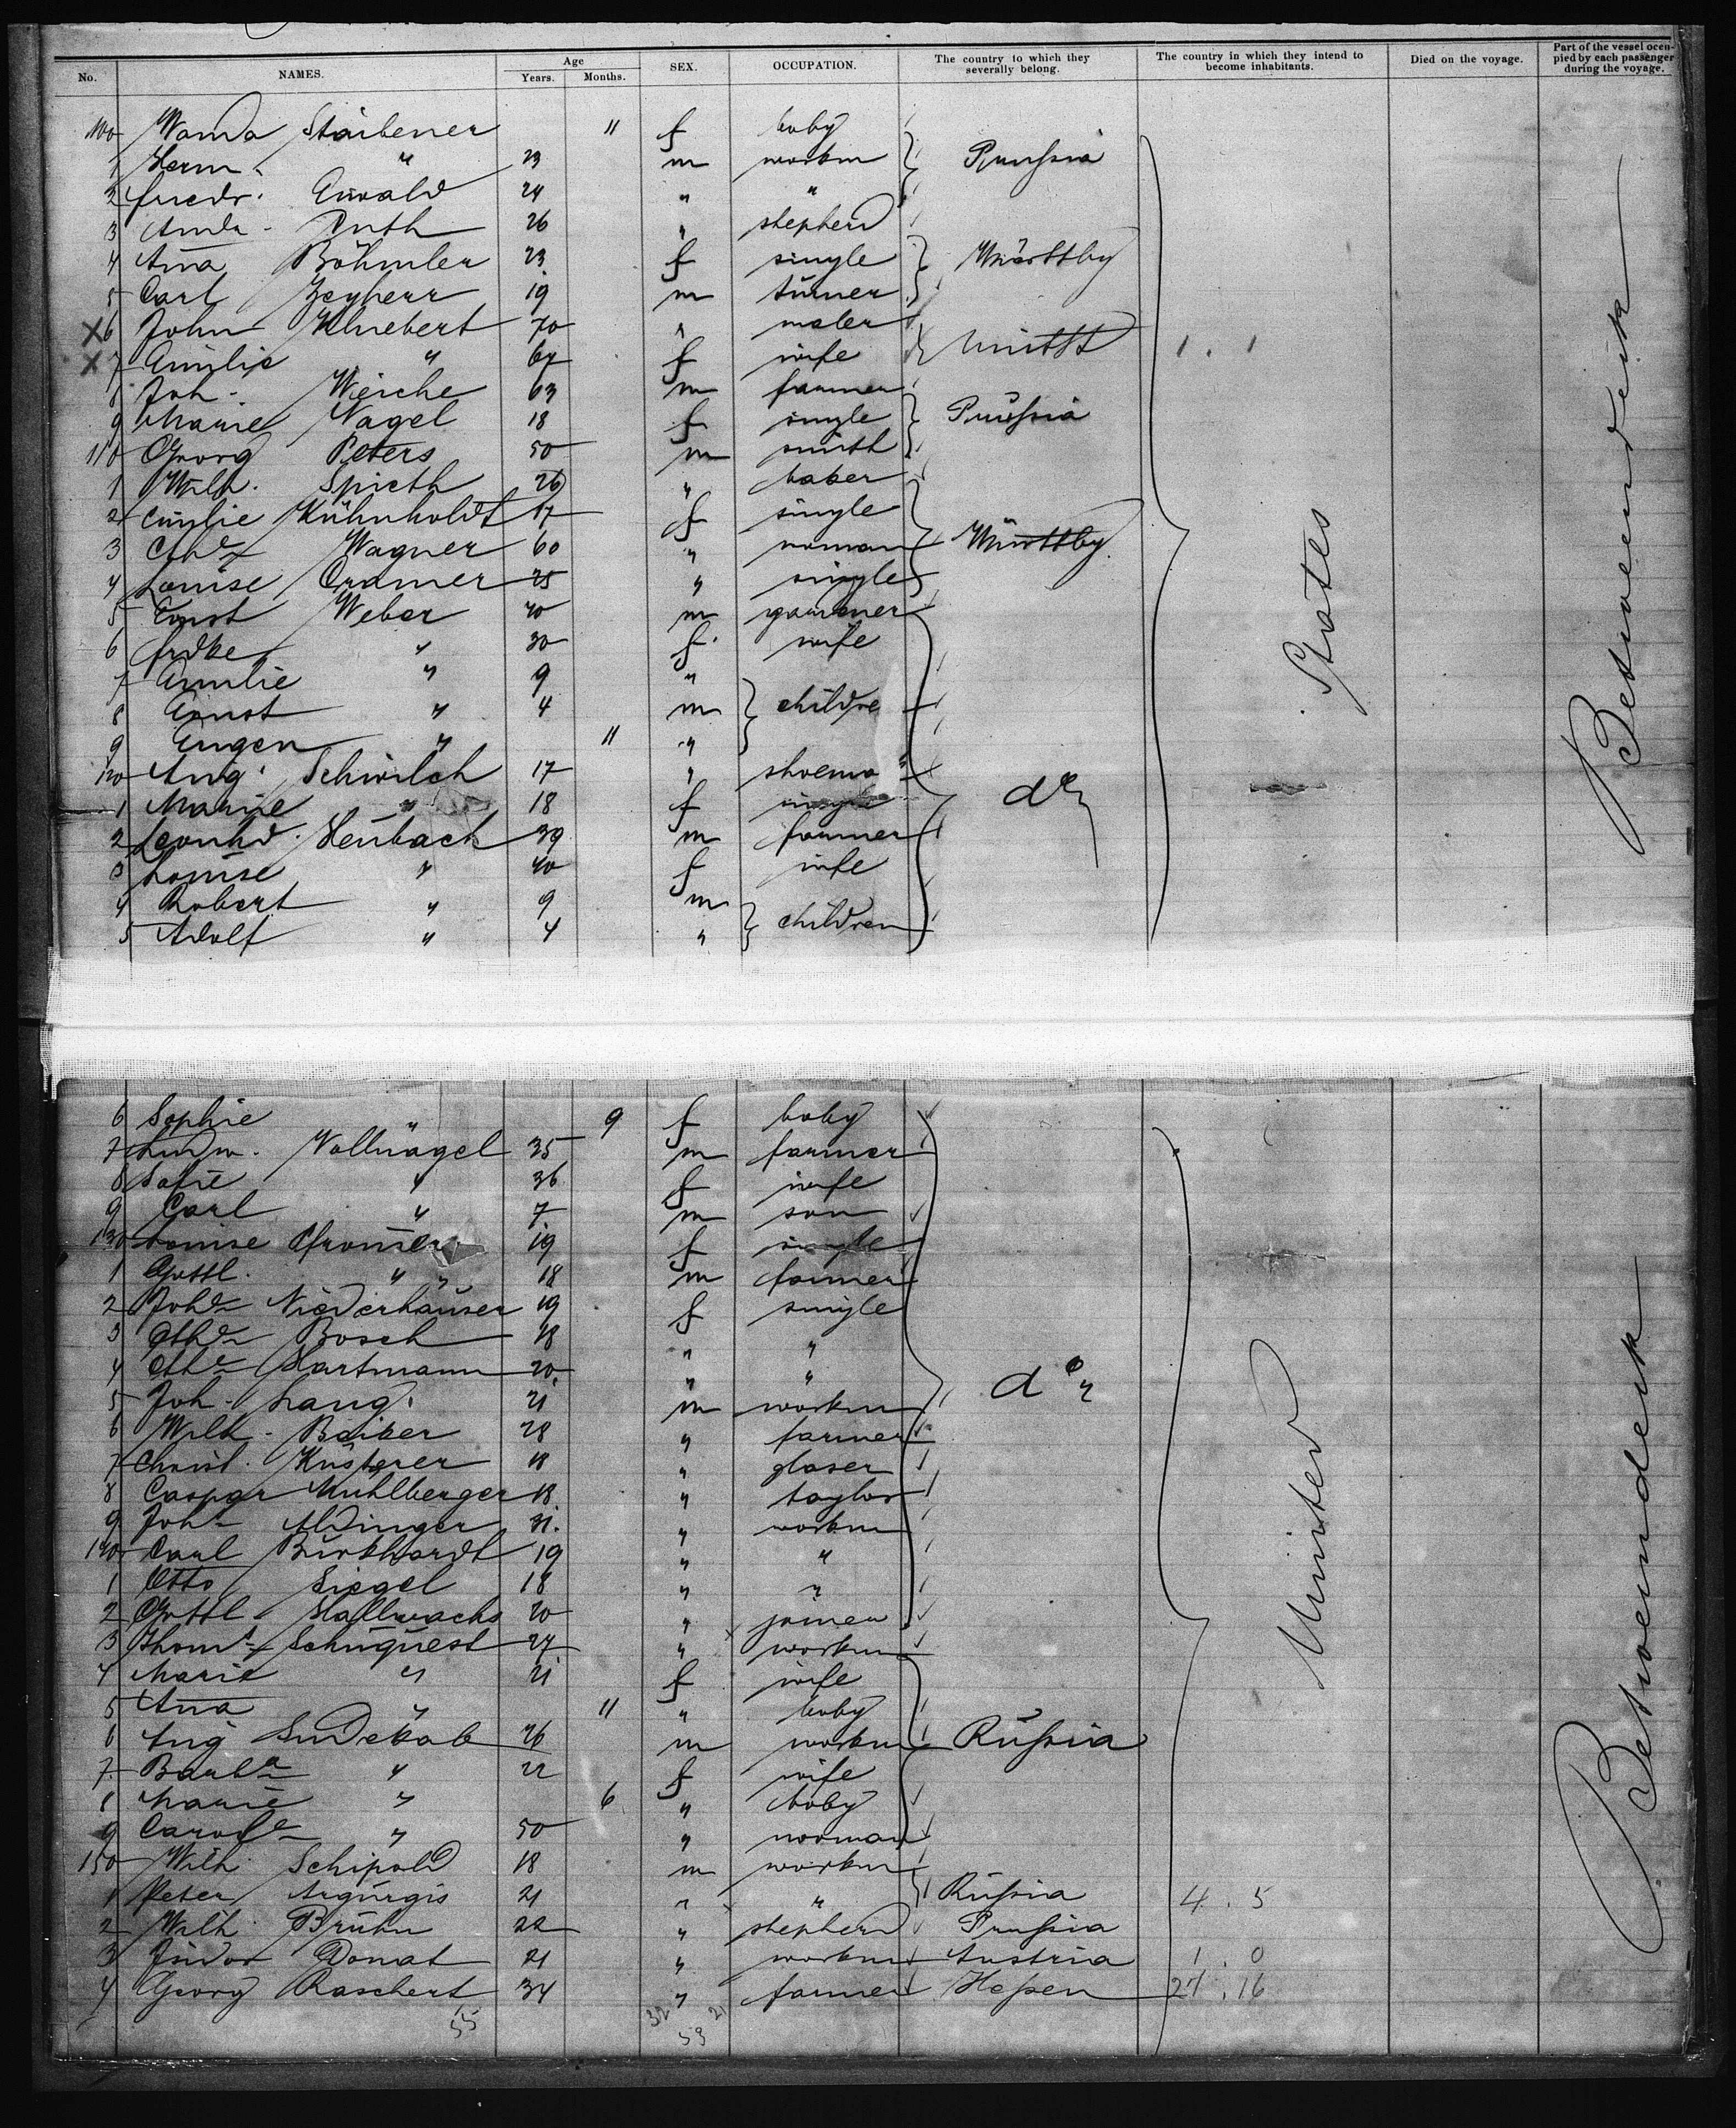 No. NAMES. Age Years. Months. SEX. OCCUPATION. The country to which they severally belong. The country in which they intend to become inhabitants. Died on the voyage. Part of the vessel occupied by each passenger during the voyage.
100 Wanda 11 f baby
1 Herm. " 23 m workm Prussia
2 friedr. Ewald 24 " "
3 26 " shepherd
4 Ana Böhmler 23 f single Württbg
5 Carl 19 m turner
X 6 John 70 "
X 7 Emilie " f wife 1 . 1
8 Joh. Weiche 63 m farmer
9 Marie Nagel 18 f single Prussia
110 Georg Peters 50 m smith
1 Wilh. Spieth 26 " baker
2 Emilie Kühnholdt 17 f single
3 Wagner 60 " woman Württbg.
4 Louise Cramer 25 " single
5 Ernst Weber 40 m gardener
6 frdke " 30 f. wife
7 Emilie " 9 "
8 Ernst " 4 m childre
9 Eugen " 11 "
120 Aug. Schwilch 17 " shoema"
1 Marie " 18 f single do
2 Leonhd. Heubach 39 m farmer
3 Louise " 40 f wife
4 Robert " 9 m
5 Adolf " 4 " children
States
Betweendeck
6 Sophie " 9 f baby
7 Ludw. Vollnagel 35 m farmer
8 Sofie " 36 f wife
9 Carl " 7 m son
130 Louise 19 f single
1 Gottl. " 18 m farmer
2 Niederhäuser 19 f single
3 Bosch 18 " "
4 Hartmann 20 " "
5 Joh. Lang. 21 m workm do
6 Wilh. Baiber 28 " farmer
7 Christ. Küsterer 18 " glaser
8 Caspar Mühlberger 18 " taylor
9 Aldinger 31. " workm
140 Carl Burkhardt 19 " "
1 Otto Siegel 18 " "
2 Gottl. Hallwachs 20 " joiner
3 27 " workm
4 Marie " 21 f wife
5 Ana " 11 " baby
6 Aug 26 m workm Russia
7 " 22 f wife
8 Marie " 6 " baby
9 " 50 " woman
150 Wilh. Schipold 18 m workm
1 Peter Argurgis 21 " " Russia 4 . 5
2 Wilh. Bruhn 22 " shepherd Prussia
3 Donat 21 " workm Austria 1 . 0
4 Georg Raschert 34 " farmer Hessen 27 . 16
55 32 21
53
United
Betweendeck